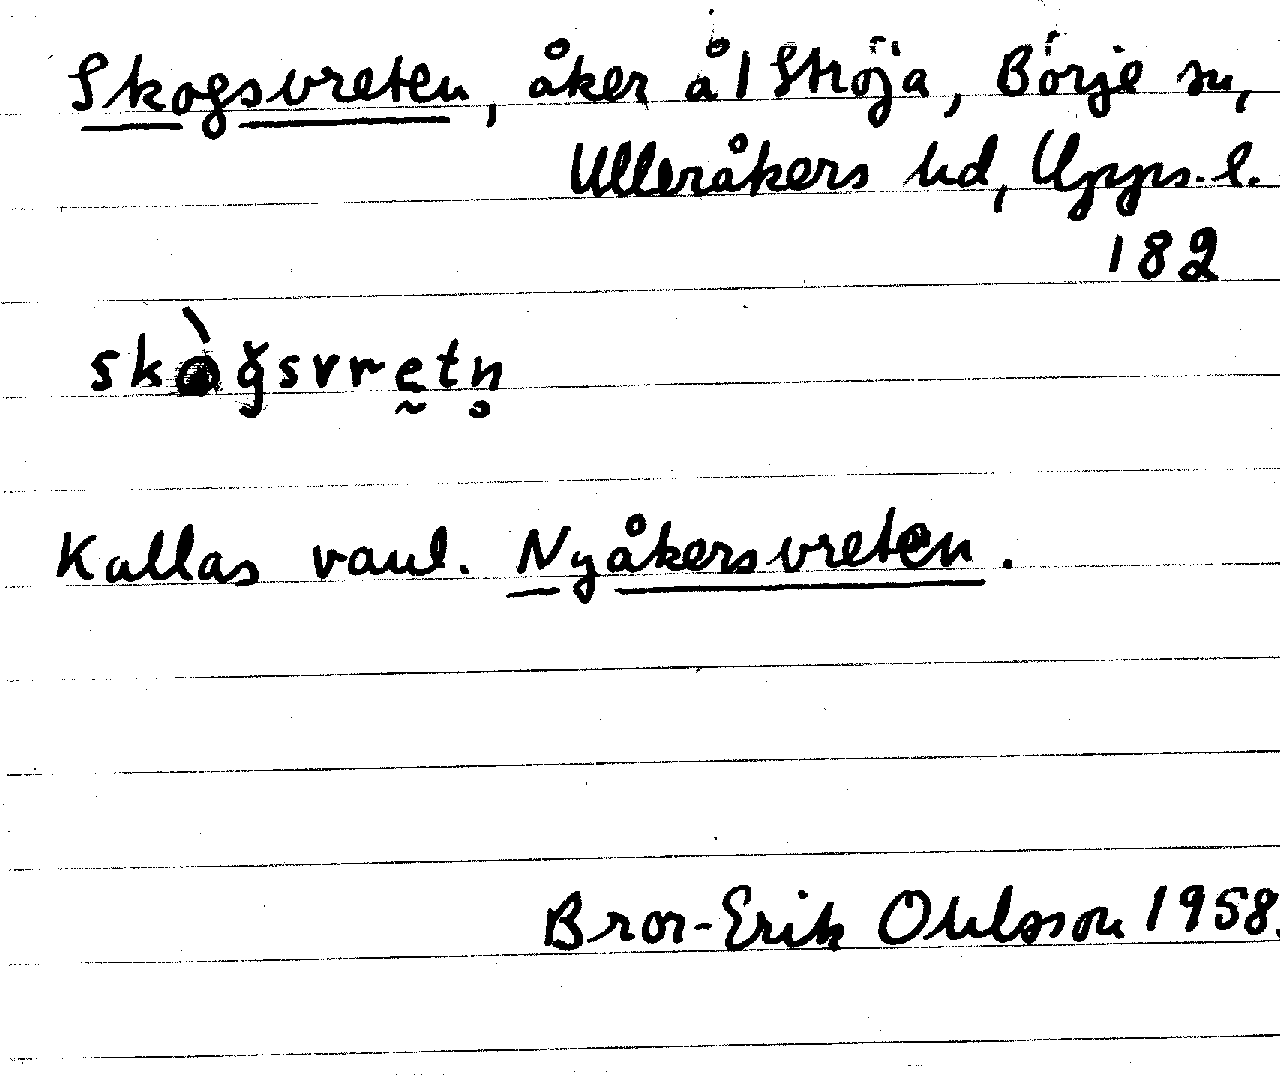 Skogsvreten, åker å 1 Ströja, Börje sn,
Ulleråkers hd, Upps. l.
182
skògsvretn̥
Kallas vanl. Nyåkersvreten.
Bror-Erik Ohlsson 1958.